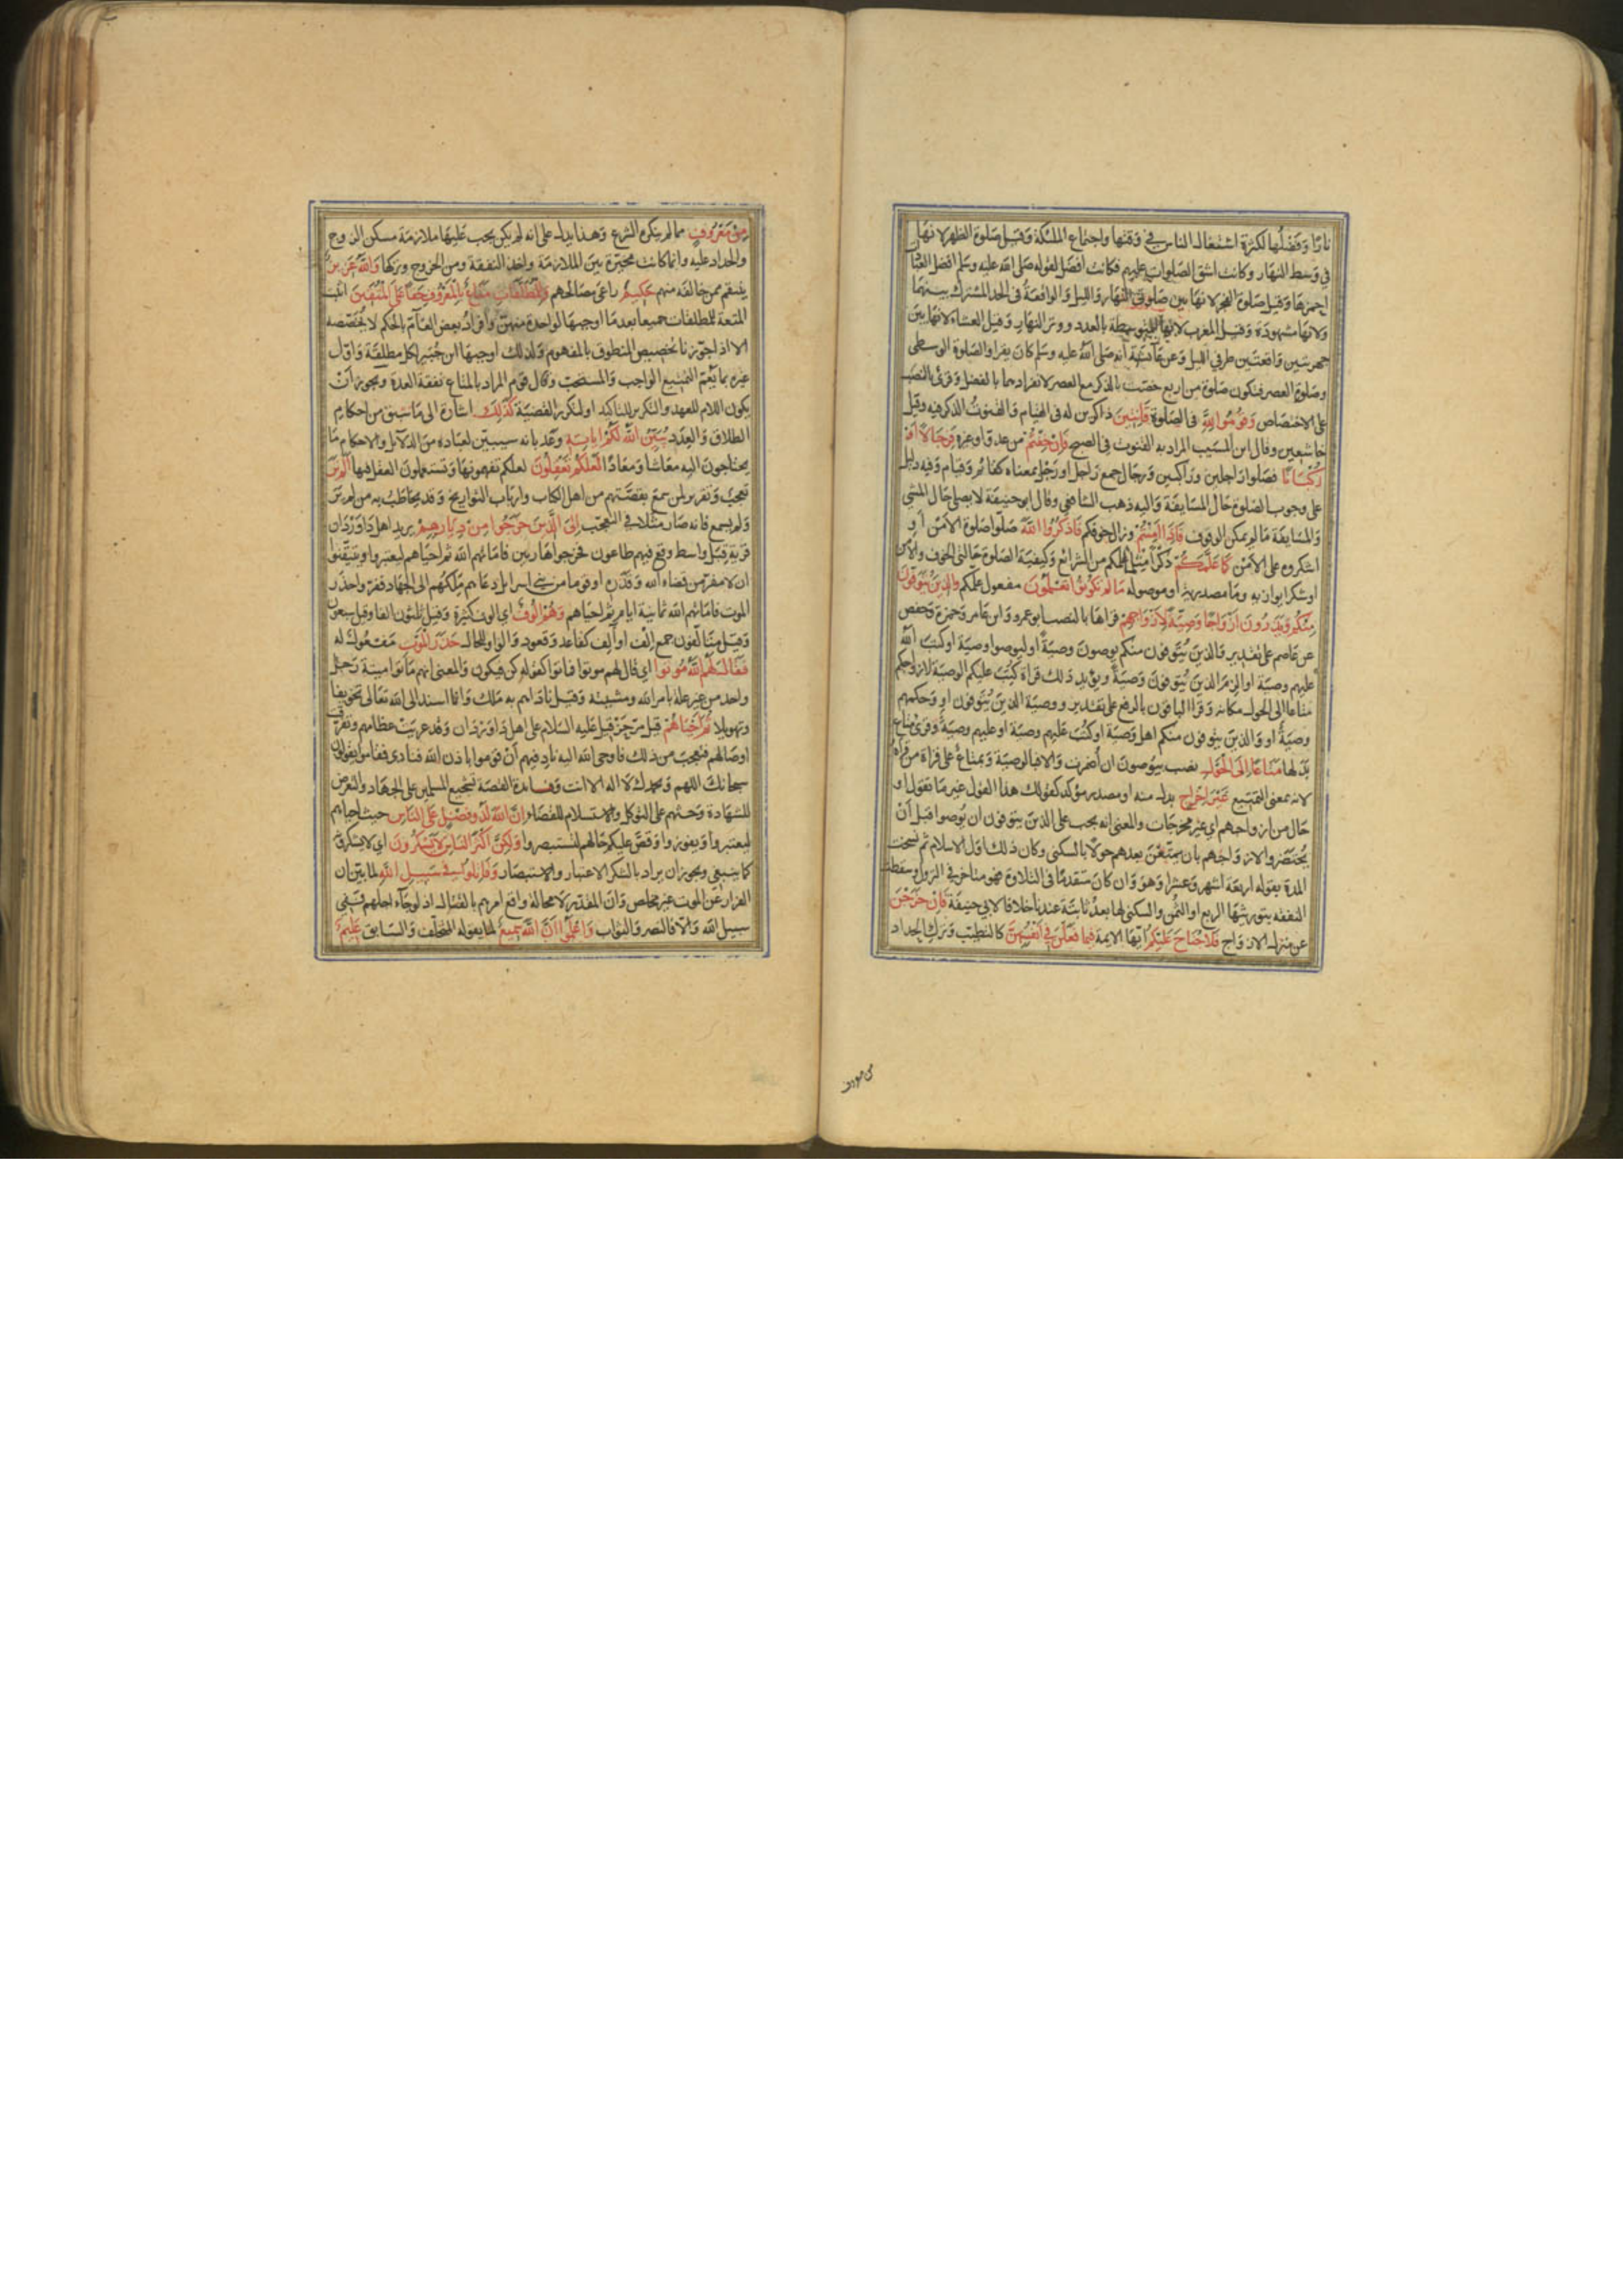 نارًا وفضلها لكثرة اشتغال الناس في وقتها واجتماع الملئكة وقيل صلوة الظهر لانها
في وسط النهار وكانت اشق الصلوات عليهم فكانت افضل لقوله صلى الله عليه وسلم افضل العبادات
احمزها وقيل صلوة الفجر لانها بين صلوتي النهار والليل والواقعة في الحد المشترك بينهما
ولانها مشهودة وقيل المغرب لانها المتوسطة بالعدد ووتر النهار وقيل العشاء لانها بين
جهرتين واقعتين طرفي الليل وعن عآئشة أنه صلى الله عليه وسلم كان يقرا والصلوة الوسطى
وصلوة العصر فتكون صلوة من اربع خصت بالذكر مع العصر لانفرادهما بالفضل وقرئ بالنصب
على الاختصاص وقوموا لله في الصلوة قانتين ذاكرين له في القيام والقنوت الذكر فيه وقيل
خاشعين وقال ابن المسيب المراد به القنوت في الصبح فإن خفتم من عدو او غيره فرجالا أو
ركبانا فصلوا راجلين وراكبين ورجال جمع راجل او رجل بمعناه كقائم وقيام وفيه دليل
على وجوب الصلوة حال المسايفة واليه ذهب الشافعي وقال ابو حنيفة لا يصلي حال المشي
والمسايفة ما لم يمكن الوقوف فإذا أمنتم وزال خوفكم فاذكروا الله صلوا صلوة الامن او
اشكروه على الامن كما علمكم ذكرا مثل ما علمكم من الشرائع وكيفية الصلوة حالتي الخوف والامن
او شكرا يوازيه وما مصدرية او موصولة ما لم تكونوا تعلمون مفعول علمكم والذين يتوفون
منكم ويذرون ازواجا وصية لازواجهم قراها بالنصب ابو عمرو وابن عامر وحمزة وحفص
عن عاصم على تقدير والذين يتوفون منكم يوصون وصية او ليوصوا وصية او كتب الله
عليهم وصية او الزم الذين يتوفون وصية ويؤيد ذلك قراة كتب عليكم الوصية لازواجكم
متاعا الى الحول مكانه وقرا الباقون بالرفع على تقدير ووصية الذين يتوفون او وحكمهم
وصية او والذين يتوفون منكم اهل وصية او كتب عليهم وصية او عليهم وصية وقرئ متاع
بدلها متاعا الى الحول نصب بيوصون ان أضمرت والا فبالوصية وبمتاع على قراة من قراه
لانه بمعنى التمتيع غير اخراج بدل منه او مصدر مؤكد كقولك هذا القول غير ما تقول او
حال من ازواجهم اي غير مخرجات والمعنى انه يجب على الذين يتوفون ان يوصوا قبل أن
يحتضروا لازواجهم بان يمتعن بعدهم حولا بالسكنى وكان ذلك اول الاسلام ثم نسخت
المدة بقوله اربعة اشهر وعشرا وهو وان كان متقدما في التلاوة فهو متاخر في النزول وسقطت
النفقه بتوريثها الربع او الثمن والسكنى لها بعد ثابتة عندنا خلافا لابي حنيفة فإن خرجن
عن منزل الازواج فلا جناح عليكم ايها الايمة فيما فعلن في انفسهن كالتطيب وترك الحداد
من معروف
من معروف مما لم ينكره الشرع وهذا يدل على انه لم يكن يجب عليها ملازمة مسكن الزوج
والحداد عليه وانما كانت مخيرة بين الملازمة واخذ النفقة ومن الخروج وتركها والله عزيز
ينتقم ممن خالفه منهم حكيم راعى مصالحهم وللمطلقات متاع بالمعروف حقا على المتقين اثبت
المتعة للمطلقات جميعا بعد ما اوجبها لواحدة منهن وافراد بعض العآم بالحكم لا يخصصه
الا اذا جوزنا تخصيص المنطوق بالمفهوم ولذلك اوجبها ابن جبير لكل مطلقة واول
غيره بما يعم التمتيع الواجب والمستحب وقال قوم المراد بالمتاع نفقة العدة ويجوز أن
يكون اللام للعهد والتكرير للتاكيد او لتكرر القضية كذلك اشارة الى ما سبق من احكام
الطلاق والعدد يبين الله لكم اياته وعد بانه سيبين لعباده من الدلآيل والاحكام ما
يحتاجون اليه معاشا ومعادا لعلكم تعقلون لعلكم تفهمونها وتستعملون العقل فيها ألم تر
تعجيب وتقرير لمن سمع بقصتهم من اهل الكتاب وارباب التواريخ وقد يخاطب به من لم ير
ولم يسمع فانه صار مثلا في التعجب إلى الذين خرجوا من ديارهم يريد اهل داوردان
قرية قبل واسط وقع فيهم طاعون فخرجوا هاربين فاماتهم الله ثم احياهم ليعتبروا ويتيقنوا
ان لا مفر من قضاء الله وقدره او قوما من بني اسرائيل دعاهم ملكهم الى الجهاد ففروا حذر
الموت فاماتهم الله ثمانية ايام ثم احياهم وهم الوف اي الوف كثيرة وقيل ثلثون الفا وقيل سبعون
وقيل متالفون جمع إلف او آلف كقاعد وقعود والواو للحال حذر الموت مفعول له
فقال لهم الله موتوا اي قال لهم موتوا فماتوا كقوله كن فيكون والمعنى انهم ماتوا ميتة رجل
واحد من غير علة بامر الله ومشيته وقيل ناداهم به ملك وانما اسند الى الله تعالى تخويفا
وتهويلا ثم احياهم قيل مر حزقيل عليه السلام على اهل داوردان وقد عريت عظامهم وتفرقت
اوصالهم فتعجب من ذلك فاوحى الله اليه ناد فيهم أن قوموا باذن الله فنادى فقاموا يقولون
سبحانك اللهم وبحمدك لا اله الا انت وفايدة القصة تشجيع المسلمين على الجهاد والتعرض
للشهادة وحثهم على التوكل والاستسلام للقضاء ان الله لذو فضل على الناس حيث احياهم
ليعتبروا ويفوزوا وقص عليكم حالهم لتستبصروا ولكن أكثر الناس لا يشكرون اي لا يشكرونه
كما ينبغي ويجوز ان يراد بالشكر الاعتبار والاستبصار وقاتلوا في سبيل الله لما بين ان
الفرار عن الموت غير مخلص وان المقدر لا محالة واقع امرهم بالقتال اذ لو جآء اجلهم ففي
سبيل الله والا فالنصر والثواب واعلموا ان الله سميع لما يقوله المتخلف والسابق عليم